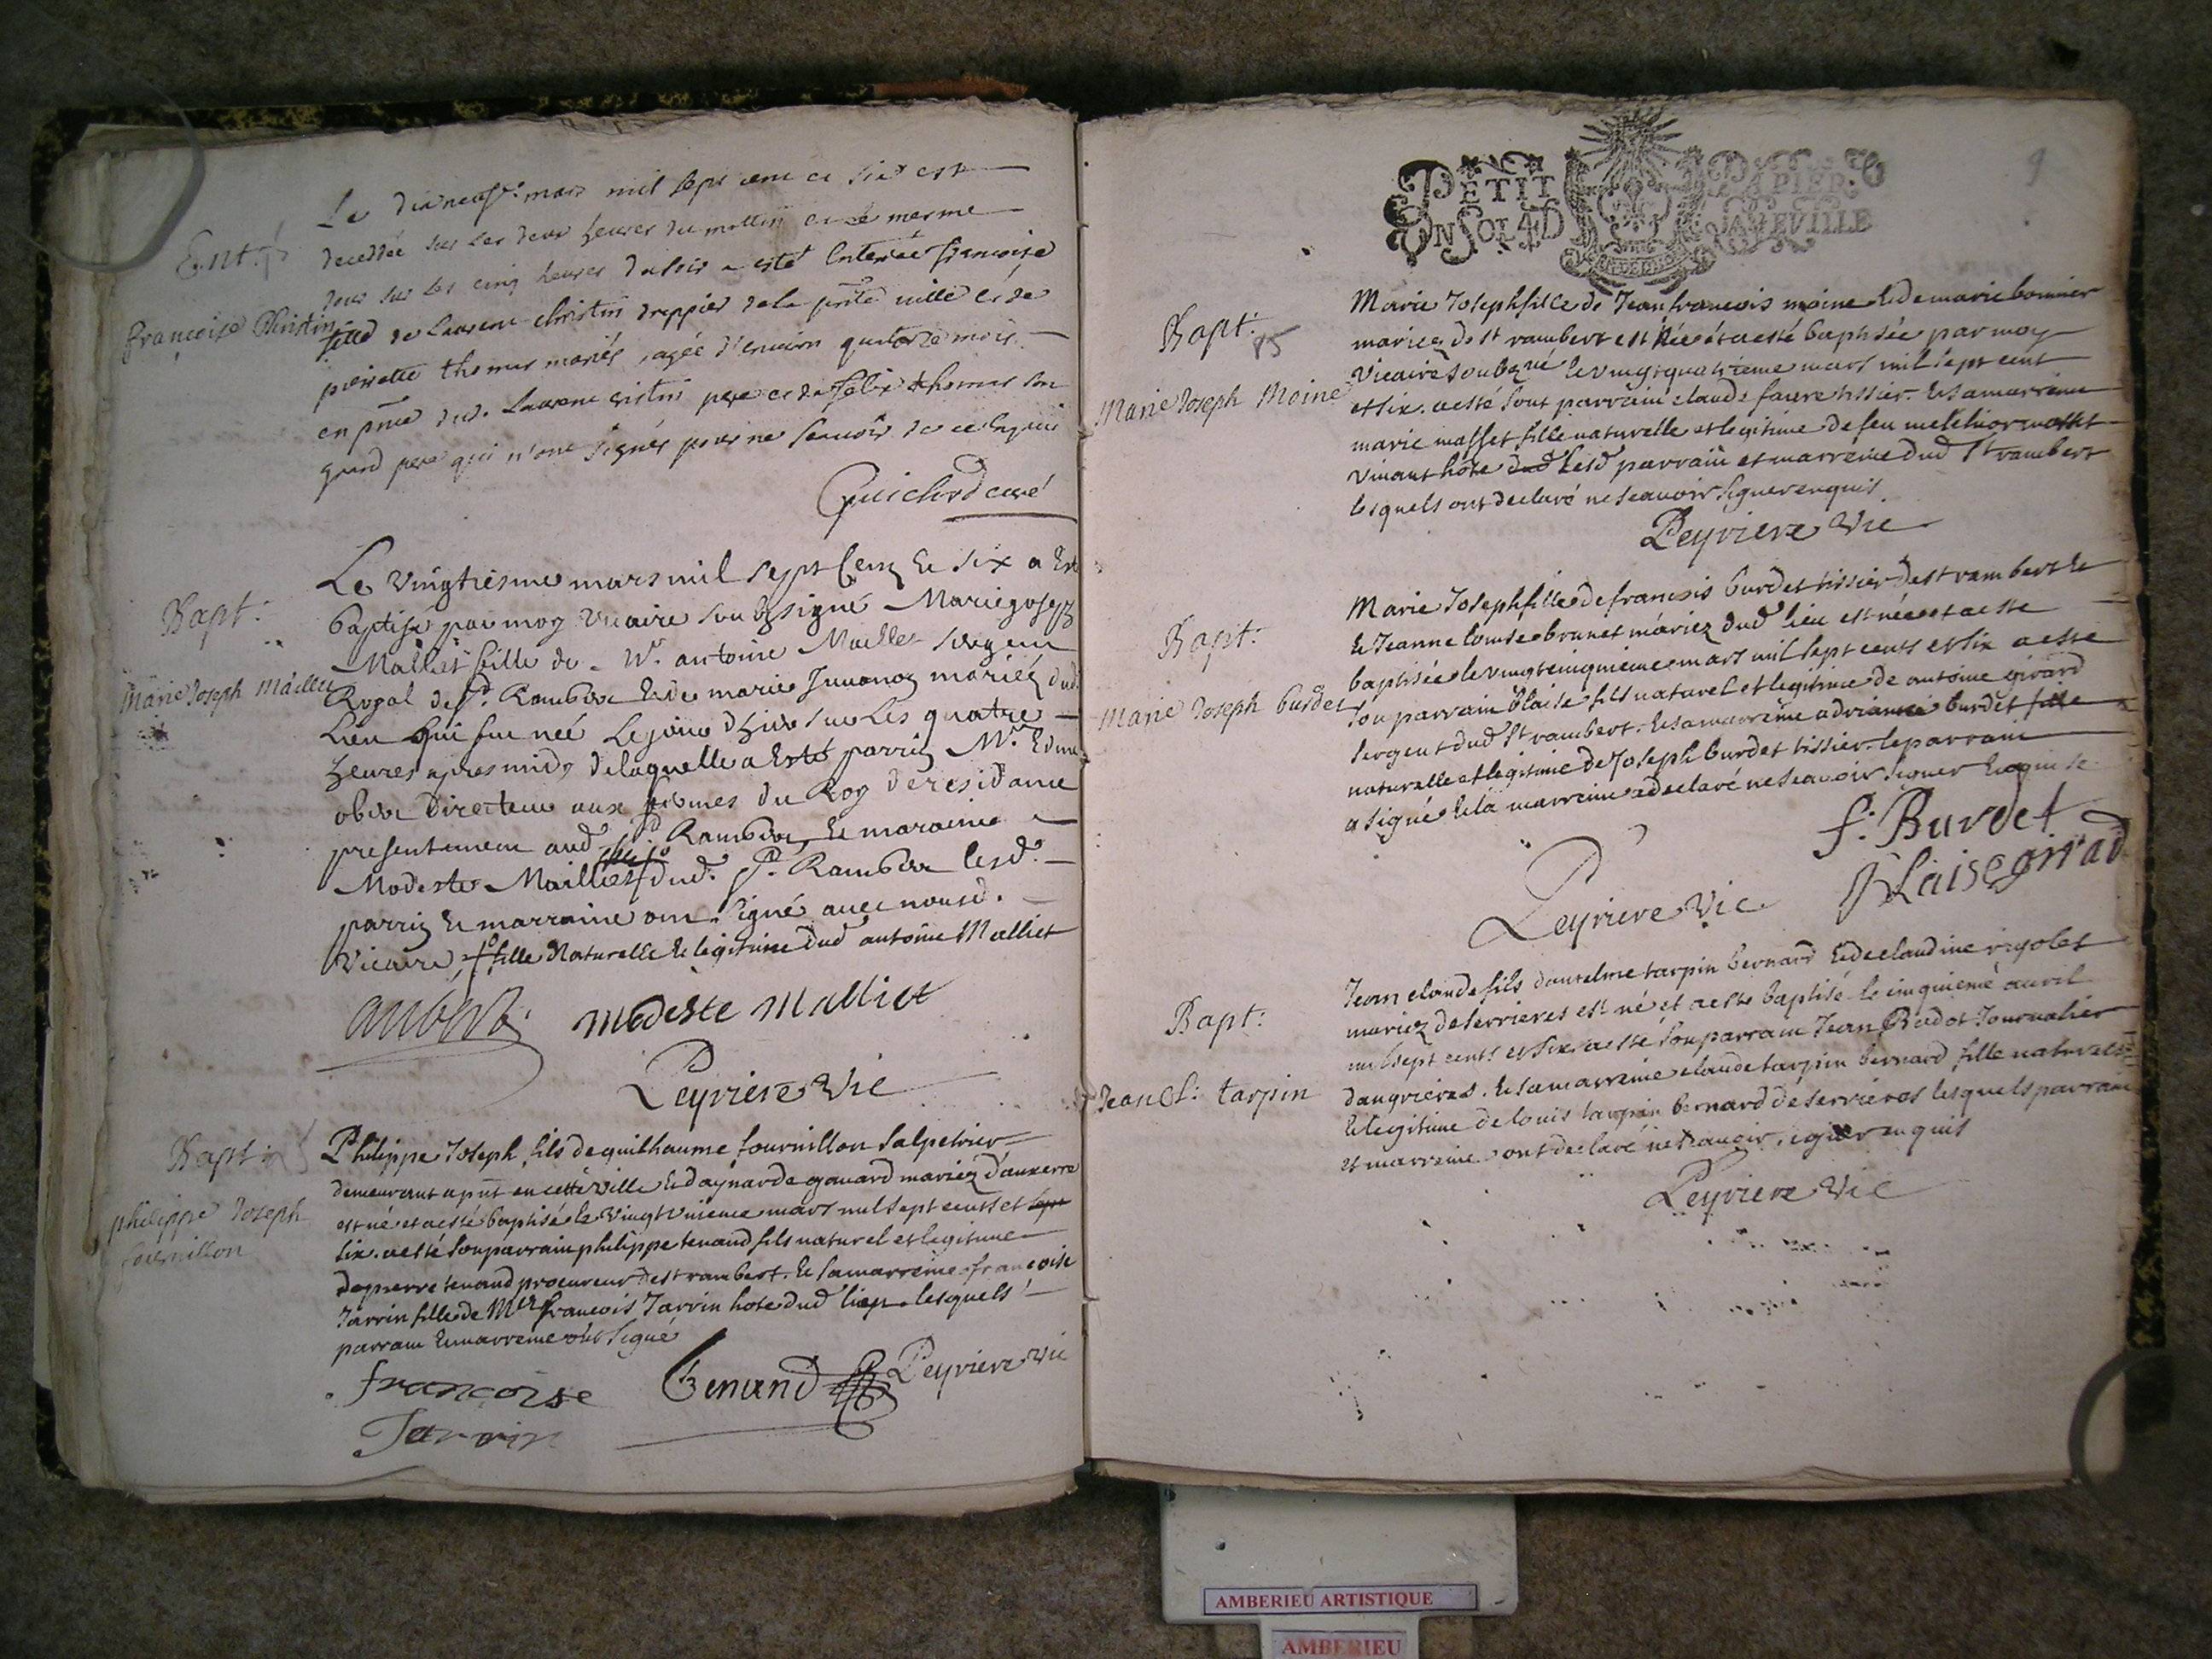 Ent:
françoise Christin
Le dixneuf.e mars mil sept cent et six est
decedée sur les deux heures du mattin et le mesme
jour sur les cinq heures du soir a esté Enterrée francoise
fille de Laurent christin drappier de la pnte ville et de
pierrette thomas mariés, agée d'environ quatorze mois
en pnce dud. Laurent cristin pere et de felix thomas son
grand pere qui n'ont signés pour ne scauoir de ce Enquis
Guichard curé
Bapt:
Marie Joseph Mailler
Le vingtiesme mars mil sept Cent Et six a Esté
baptisé par moy vicaire soubsigné Marie joseph
Malliet fille de Mr. antoine Mallet sergent
Royal de St. Rambert Et de marie Juuanon mariéz dud.
Lieu qui fut née Le jour d'hier sur Les quatre
heures apres midy de laquelle a Esté parrin Mr. Edme
obert Directeur aux fermes du Roy de residance
presentement aud. St Rambert, Et maraine
Modeste Mailliet dud. St. Rambert lesd.
parrin Et marraine ont signé auec nousd.
Vicaire, fille Naturelle Et legitime dud antoine Malliet
aubert modeste Malliet
Peyriere Vic
Bapt:
philippe Joseph
fournillon
Philippe Joseph fils de guilhaume fournillon salpetrier
demeurant a pnt en cette ville Et d'aynarde gonard mariez d'auxerre
est né et a esté baptisé le vingt unieme mars mil sept cents et sept
six. a esté son parrain philippe tenand fils naturel et legitime
de pierre tenand procureur de st rambert. Et sa marreine francoise
Jarrin fille de Mtre francois Jarrin hote dud lieu lesquels
parrain Et marreine ont signé
francoise Tenand Peyriere vic
Jarrin
PETIT PAPIER
EN SOL 4 D
9
Bapt:
85
Marie Joseph Moine
Marie Joseph fille de Jean francois moine Et de marie bonnier
mariez de st rambert est Née et a esté baptisée par moy
vicaire soubsné le vingt quatrieme mars mil sept cent
et six. a esté sont parrain claude faure tissier. Et sa marreine
marie masset fille naturelle et legitime de feu melchior masset
vivant hôte dud lesd parrain et marreine dud St rambert
lesquels ont declaré ne scauoir signer enquis.
Peyriere Vic
Bapt:
Marie Joseph burdet
Marie Joseph fille de francois burdet tissier de st rambert Et
Et Jeanne louise brunet mariez dud lieu est née et a este
baptisée le vingt cinquieme mars mil sept cents et six a este
son parrain blaise fils naturel et legitime de antoine girard
sergent dud St rambert. Et sa marreine adrianne burdet fille
naturelle et legitime de Joseph burdet tissier. le parrain
a signé Et la marreine a declaré ne scauoir signer Enquise
f. Burdet
Peyriere Vic
Blaise girad
Bapt:
Jean Cl: tarpin
Jean claude fils d'antelme tarpin bernard Et de claudine rigolet
mariez de serrieres est né et a este baptisé le cinquieme auril
mil sept cents et six a esté son parrain Jean Badot Journalier
d'angrieres. Et sa marreine claude tarpin bernard fille naturelle
Et legitime de louis tarpin bernard de serrieres lesquels parrain
et marreine ont declaré ne scauoir signer enquis
Peyriere Vic
AMBERIEU ARTISTIQUE
AMBERIEU